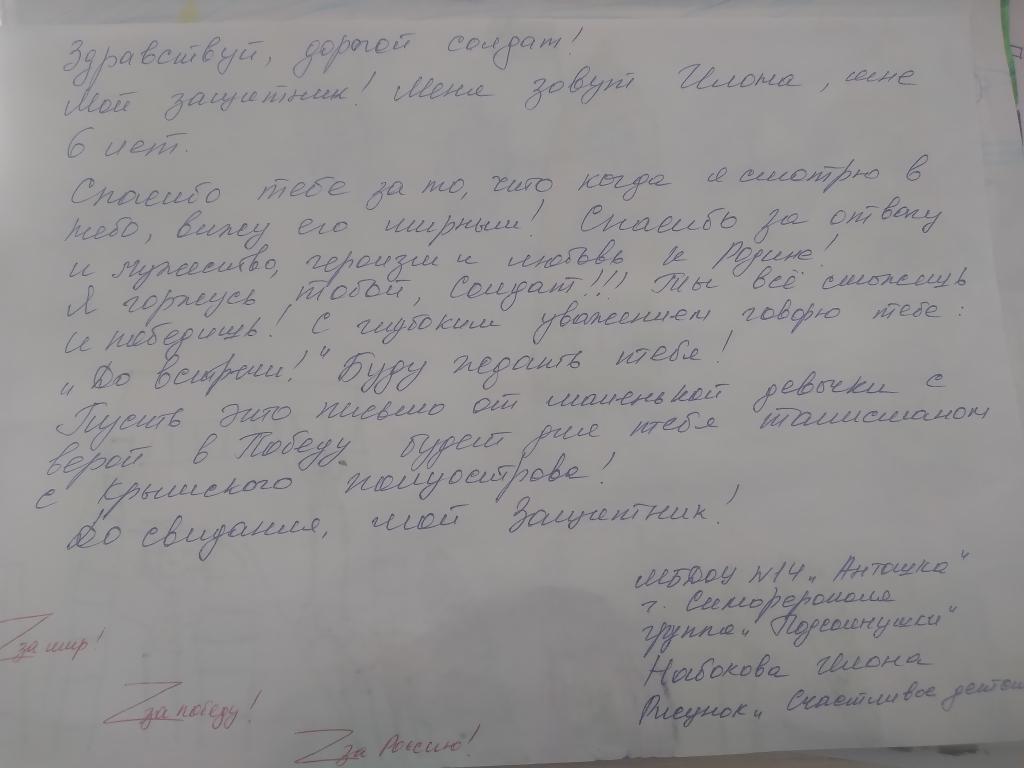 Здравствуй, дорогой солдат!
Мой защитник! Меня зовут Илона, мне
6 лет.
Спасибо тебе за то, что когда я смотрю в
небо, вижу его мирным! Спасибо за отвагу
и мужество, героизм и любовь к Родине!
Я горжусь тобой, Солдат!!! Ты всё сможешь
и победишь! С глубоким уважением говорю тебе:
„До встречи!" Буду ждать тебя!
Пусть это письмо от маленькой девочки с
верой в Победу будет для тебя талисманом
с Крымского полуострова!
До свидания, мой Защитник!
МБДОУ №14 „Антошка"
г. Симферополя
группа „Подсолнушки"
Набокова Илона
Рисунок „Счастливое детст
Z за мир!
Z за победу!
Z за Россию!